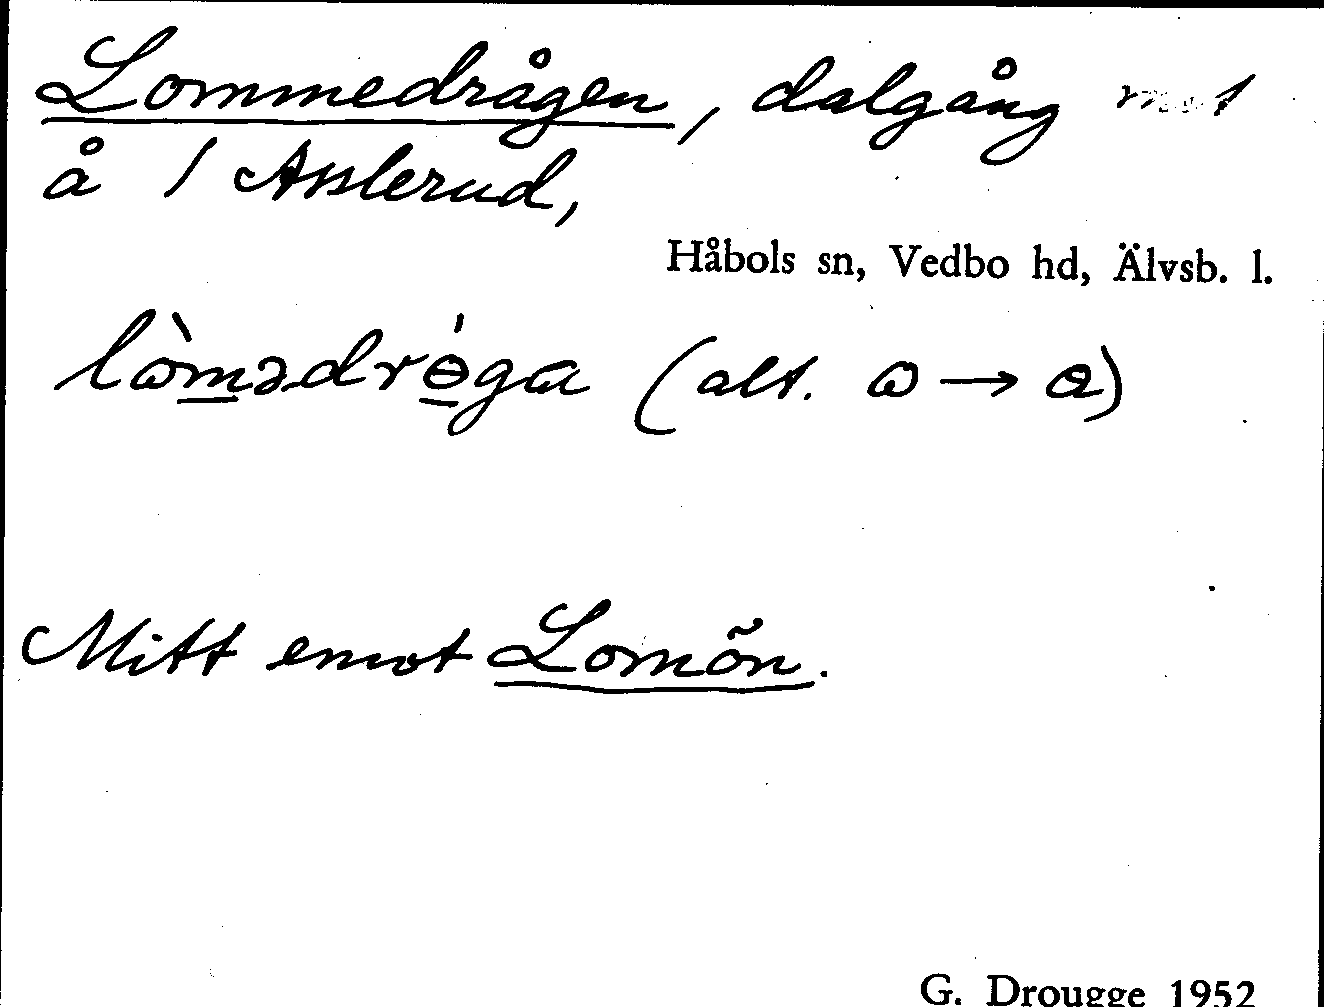 Lommedrågen, dalgång mot
å / Asslerud,
Håbols sn, Vedbo hd, Älvsb. l.
lὼmədrɵ́ga (alt. ω → ɵ)
Mitt emot Lomön.
G. Drougge 1952